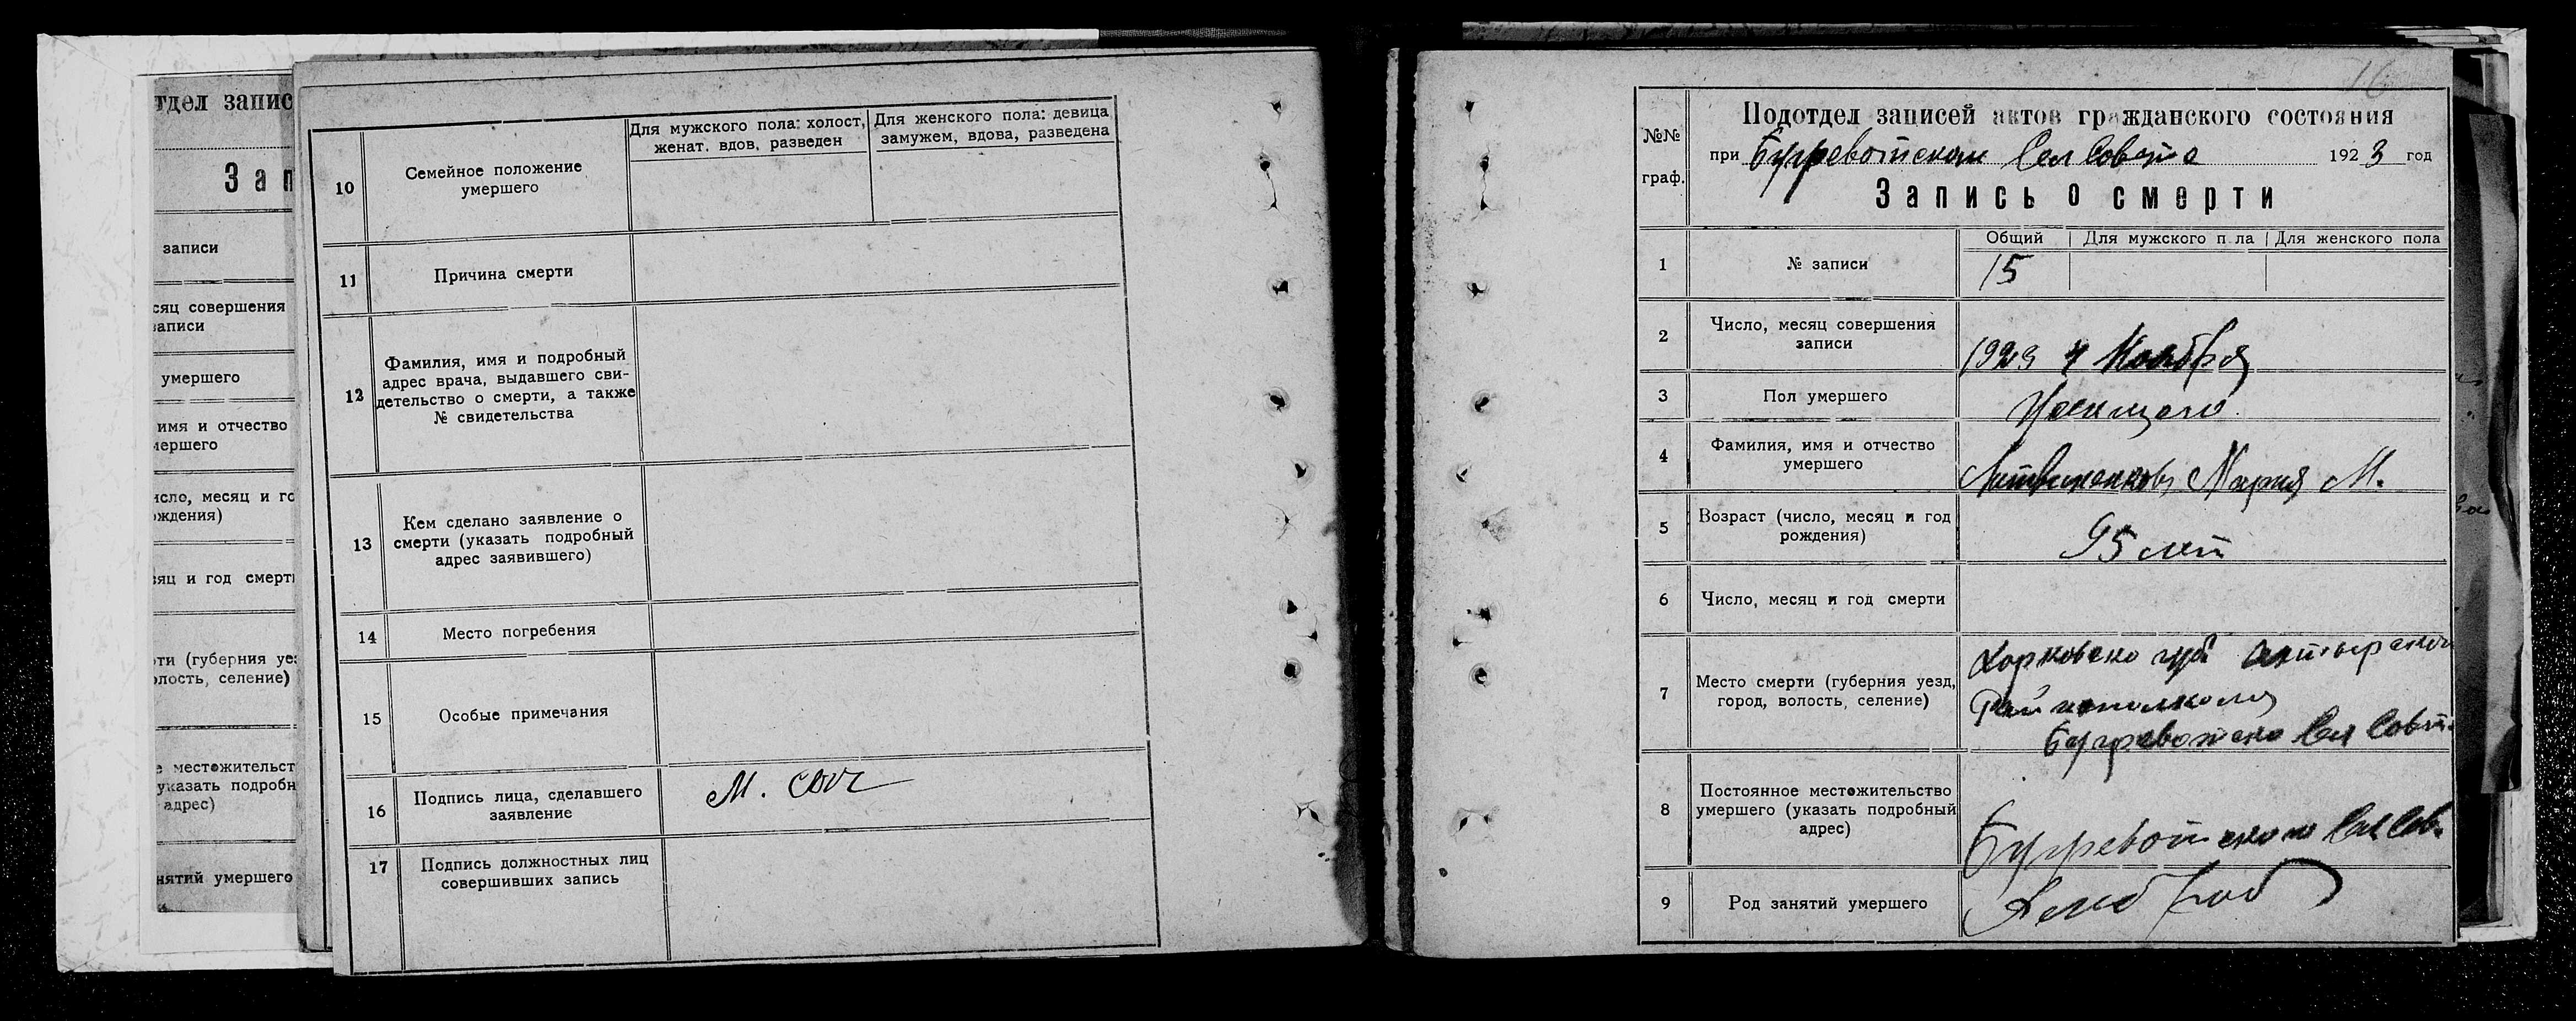 тдел запис
Зап
записи
сяц совершения
записи
умершего
имя и отчество
мершего
исло, месяц и го
ождения)
сяц и год смерти
рти (губерния уез
олость, селение)
е местожительст
указать подробн
адрес)
нятий умершего
10
Семейное положение
умершего
Для мужского пола: холост,
женат. вдов, разведен
Для женского пола: девица
замужем, вдова, разведена
11
Причина смерти
12
Фамилия, имя и подробный
адрес врача, выдавшего сви-
детельство о смерти, а также
№ свидетельства
13
Кем сделано заявление о
смерти (указать подробный
адрес заявившего)
14
Место погребения
15
Особые примечания
16
Подпись лица, сделавшего
заявление
М.
17
Подпись должностных лиц
совершивших запись
16
№№
граф.
Подотдел записей актов гражданского состояния
при Бугреватском Сел Совете 1923 год
Запись о смерти
1
№ записи
Общий
Для мужского п ла
Для женского пола
15
2
Число, месяц совершения
записи
1923 4 Ноября
3
Пол умершего
4
Фамилия, имя и отчество
умершего
Литвиненкова Мария М.
5
Возраст (число, месяц и год
рождения)
95 лет
6
Число, месяц и год смерти
7
Место смерти (губерния уезд,
город, волость, селение)
Харковско губ
Райисполкома
Сел Совет
8
Постоянное местожительство
умершего (указать подробный
адрес)
Сел Сов.
9
Род занятий умершего